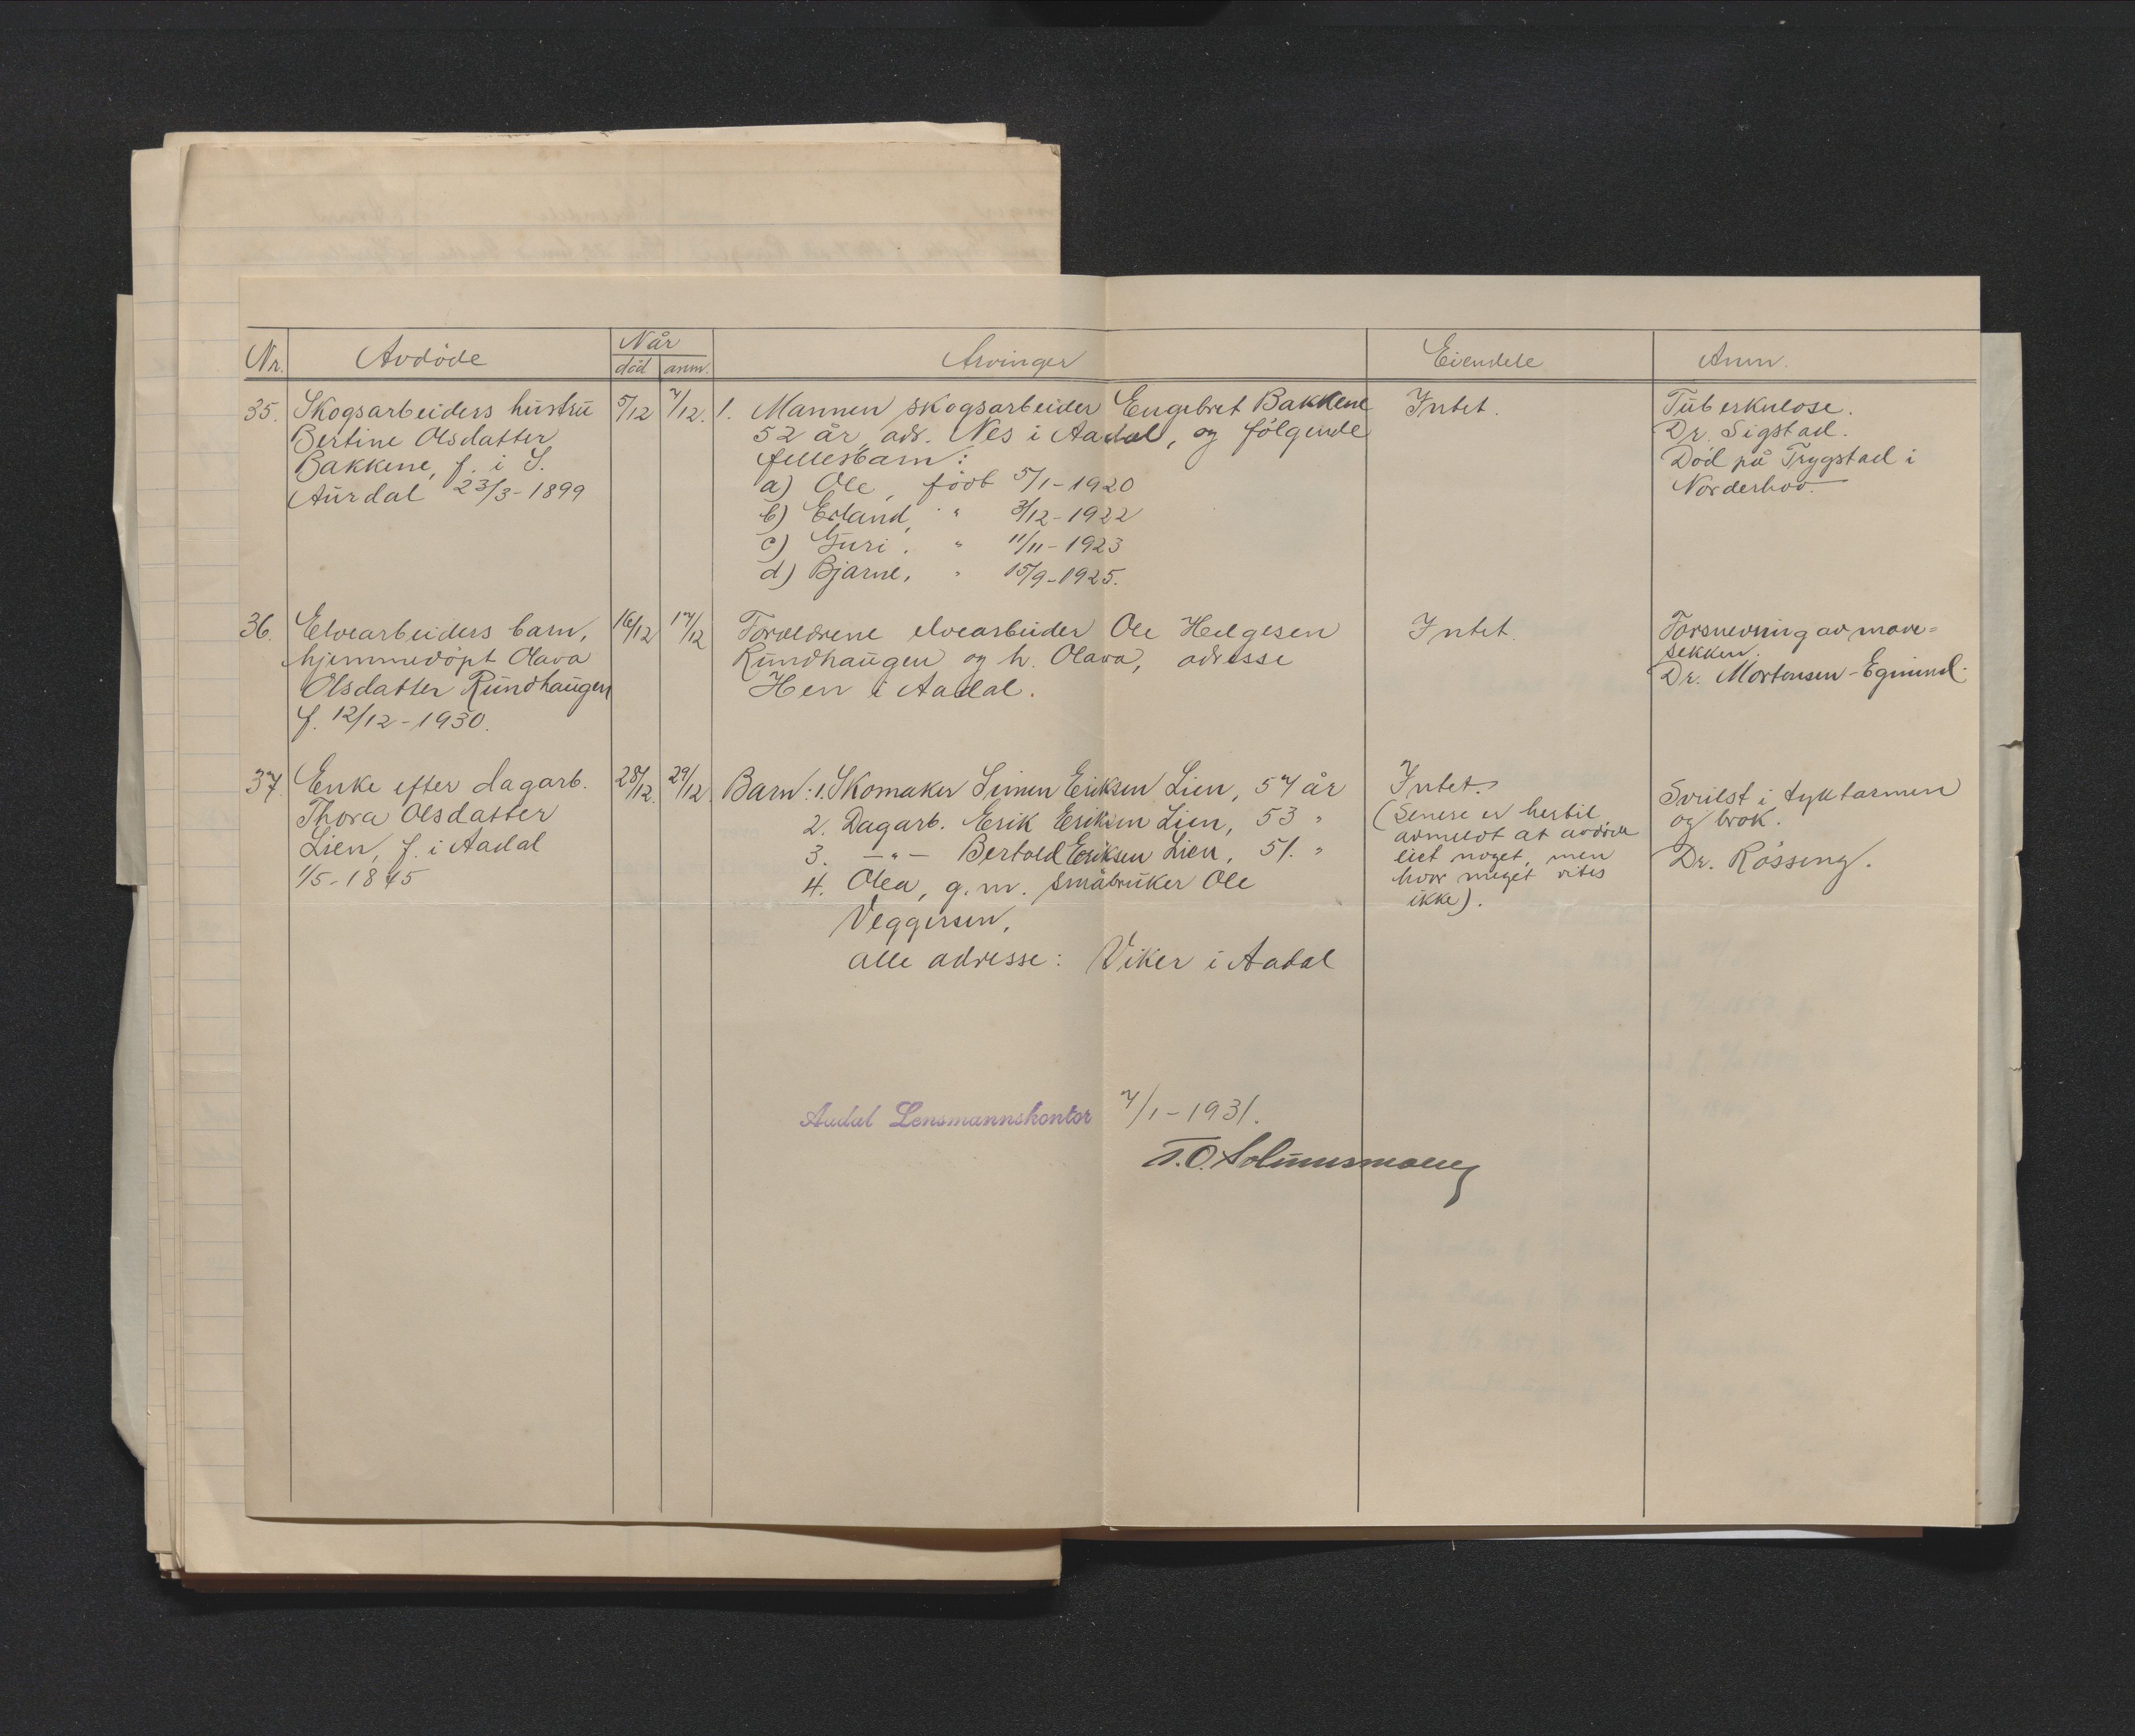 Nr. Avdöde Når Arvinger Eiendele Anm.
död anm.
35. Skogsarbeiders hustru 5/12 7/12. 1. Mannen skogsarbeider Engebret Bakkene Intet. Tuberkulose.
Bertine Olsdatter 52 år, adr. Nes i Aadal, og fölgende Dr. Sigstad.
Bakkene, f. i S. fellesbarn: Död på Trygstad i
Aurdal 23/3-1899 a) Ole, födt 5/1-1920 Norderhov.
b) Erland, " 3/12-1922
c) Guri, " 11/11-1923
d) Bjarne, " 15/9-1925.
36. Elvearbeiders barn, 16/12 17/12 Foreldrene elvearbeider Ole Helgesen Intet. Forsnevring av mave=
hjemmedöpt Olava Rundhaugen og h. Olava, adresse sekken.
Olsdatter Rundhaugen Hen i Aadal. Dr. Mortensen-Egnund.
f. 12/12-1930.
37. Enke efter dagarb. 28/12. 29/12. Barn: 1. Skomaker Simen Eriksen Lien, 57 år Intet. Svulst i tyktarmen
Thora Olsdatter 2. Dagarb. Erik Eriksen Lien, 53 " (Senere er hertil og brok.
Lien, f. i Aadal 3. -"- Bertold Eriksen Lien, 51. " anmeldt at avdöde Dr. Rössing.
1/5-1845 4. Olea, g.m. småbruker Ole eiet noget, men
Veggersen, hvor meget vites
alle adresse: Viker i Aadal ikke).
Aadal Lensmannskontor 7/1-1931.